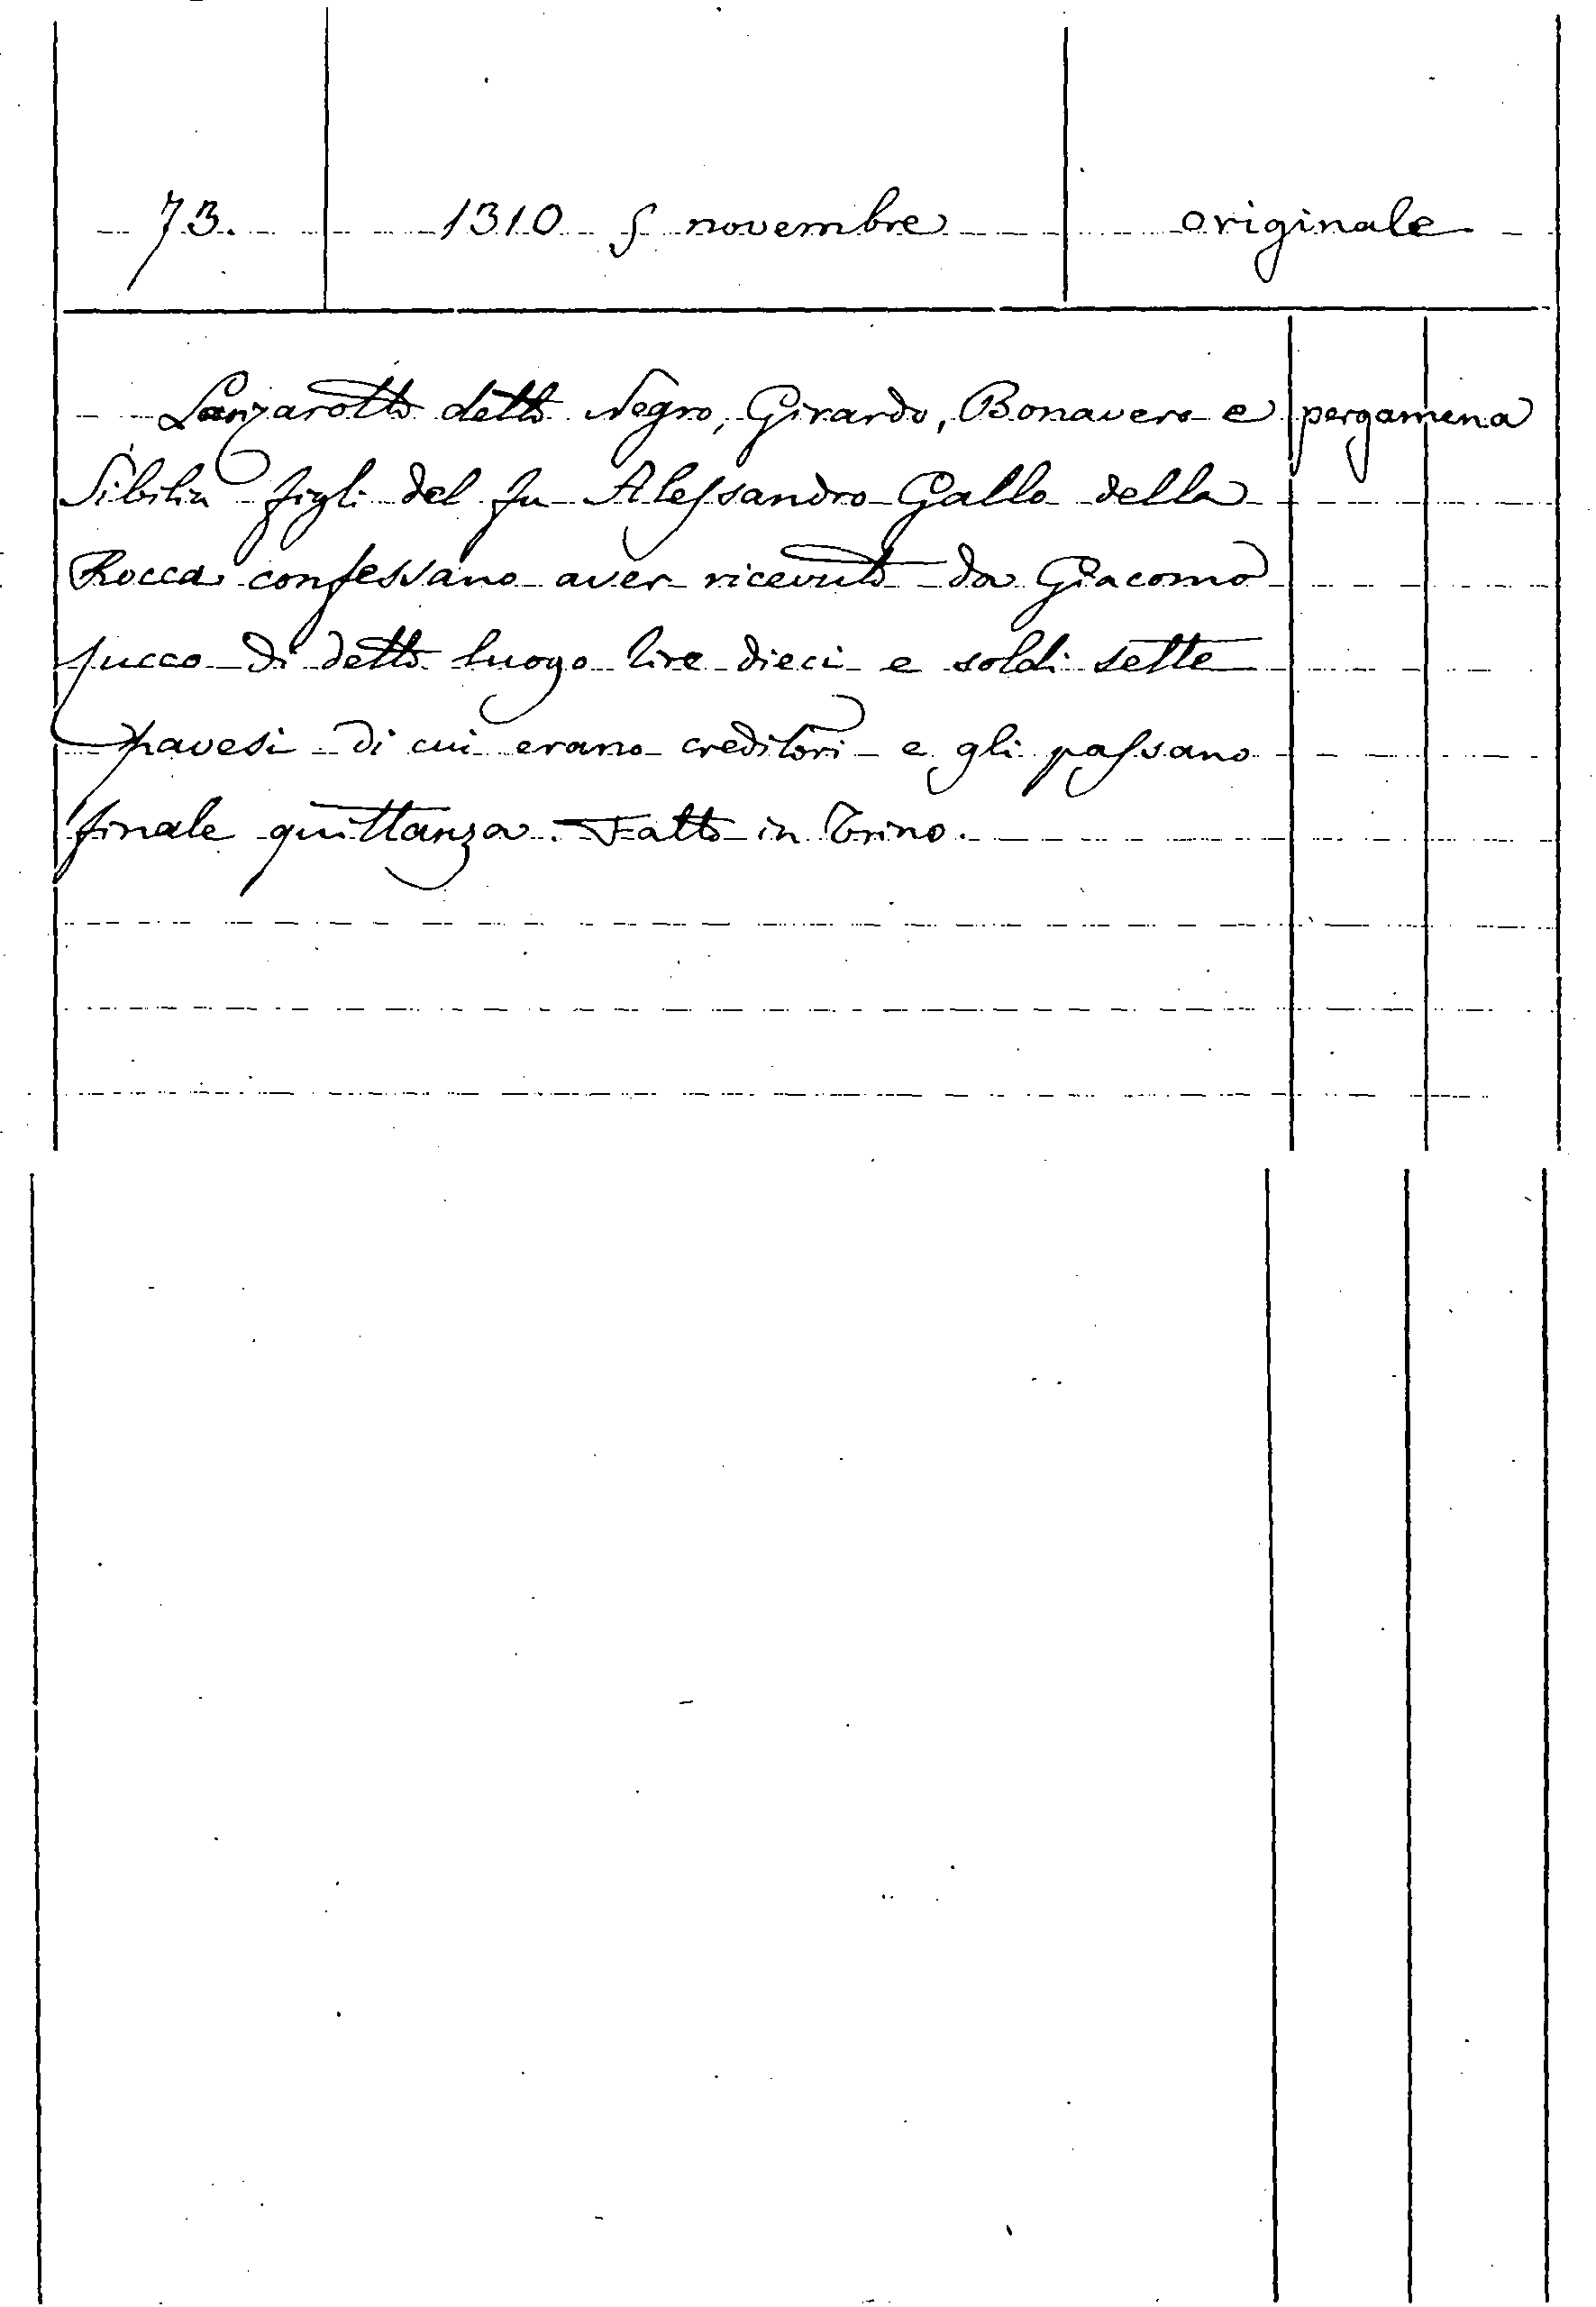 73. 1310 5 novembre originale
Lanzarotto detto Negro, Girardo, Bonavero e pergamena
Sibilia figli del fu Alessandro Gallo della
Rocca confessano aver ricevuto da Giacomo
succo di detto luogo lire dieci e soldi sette
pavesi di cui erano creditori e gli passano
finale quittanza. Fatto in Trino.